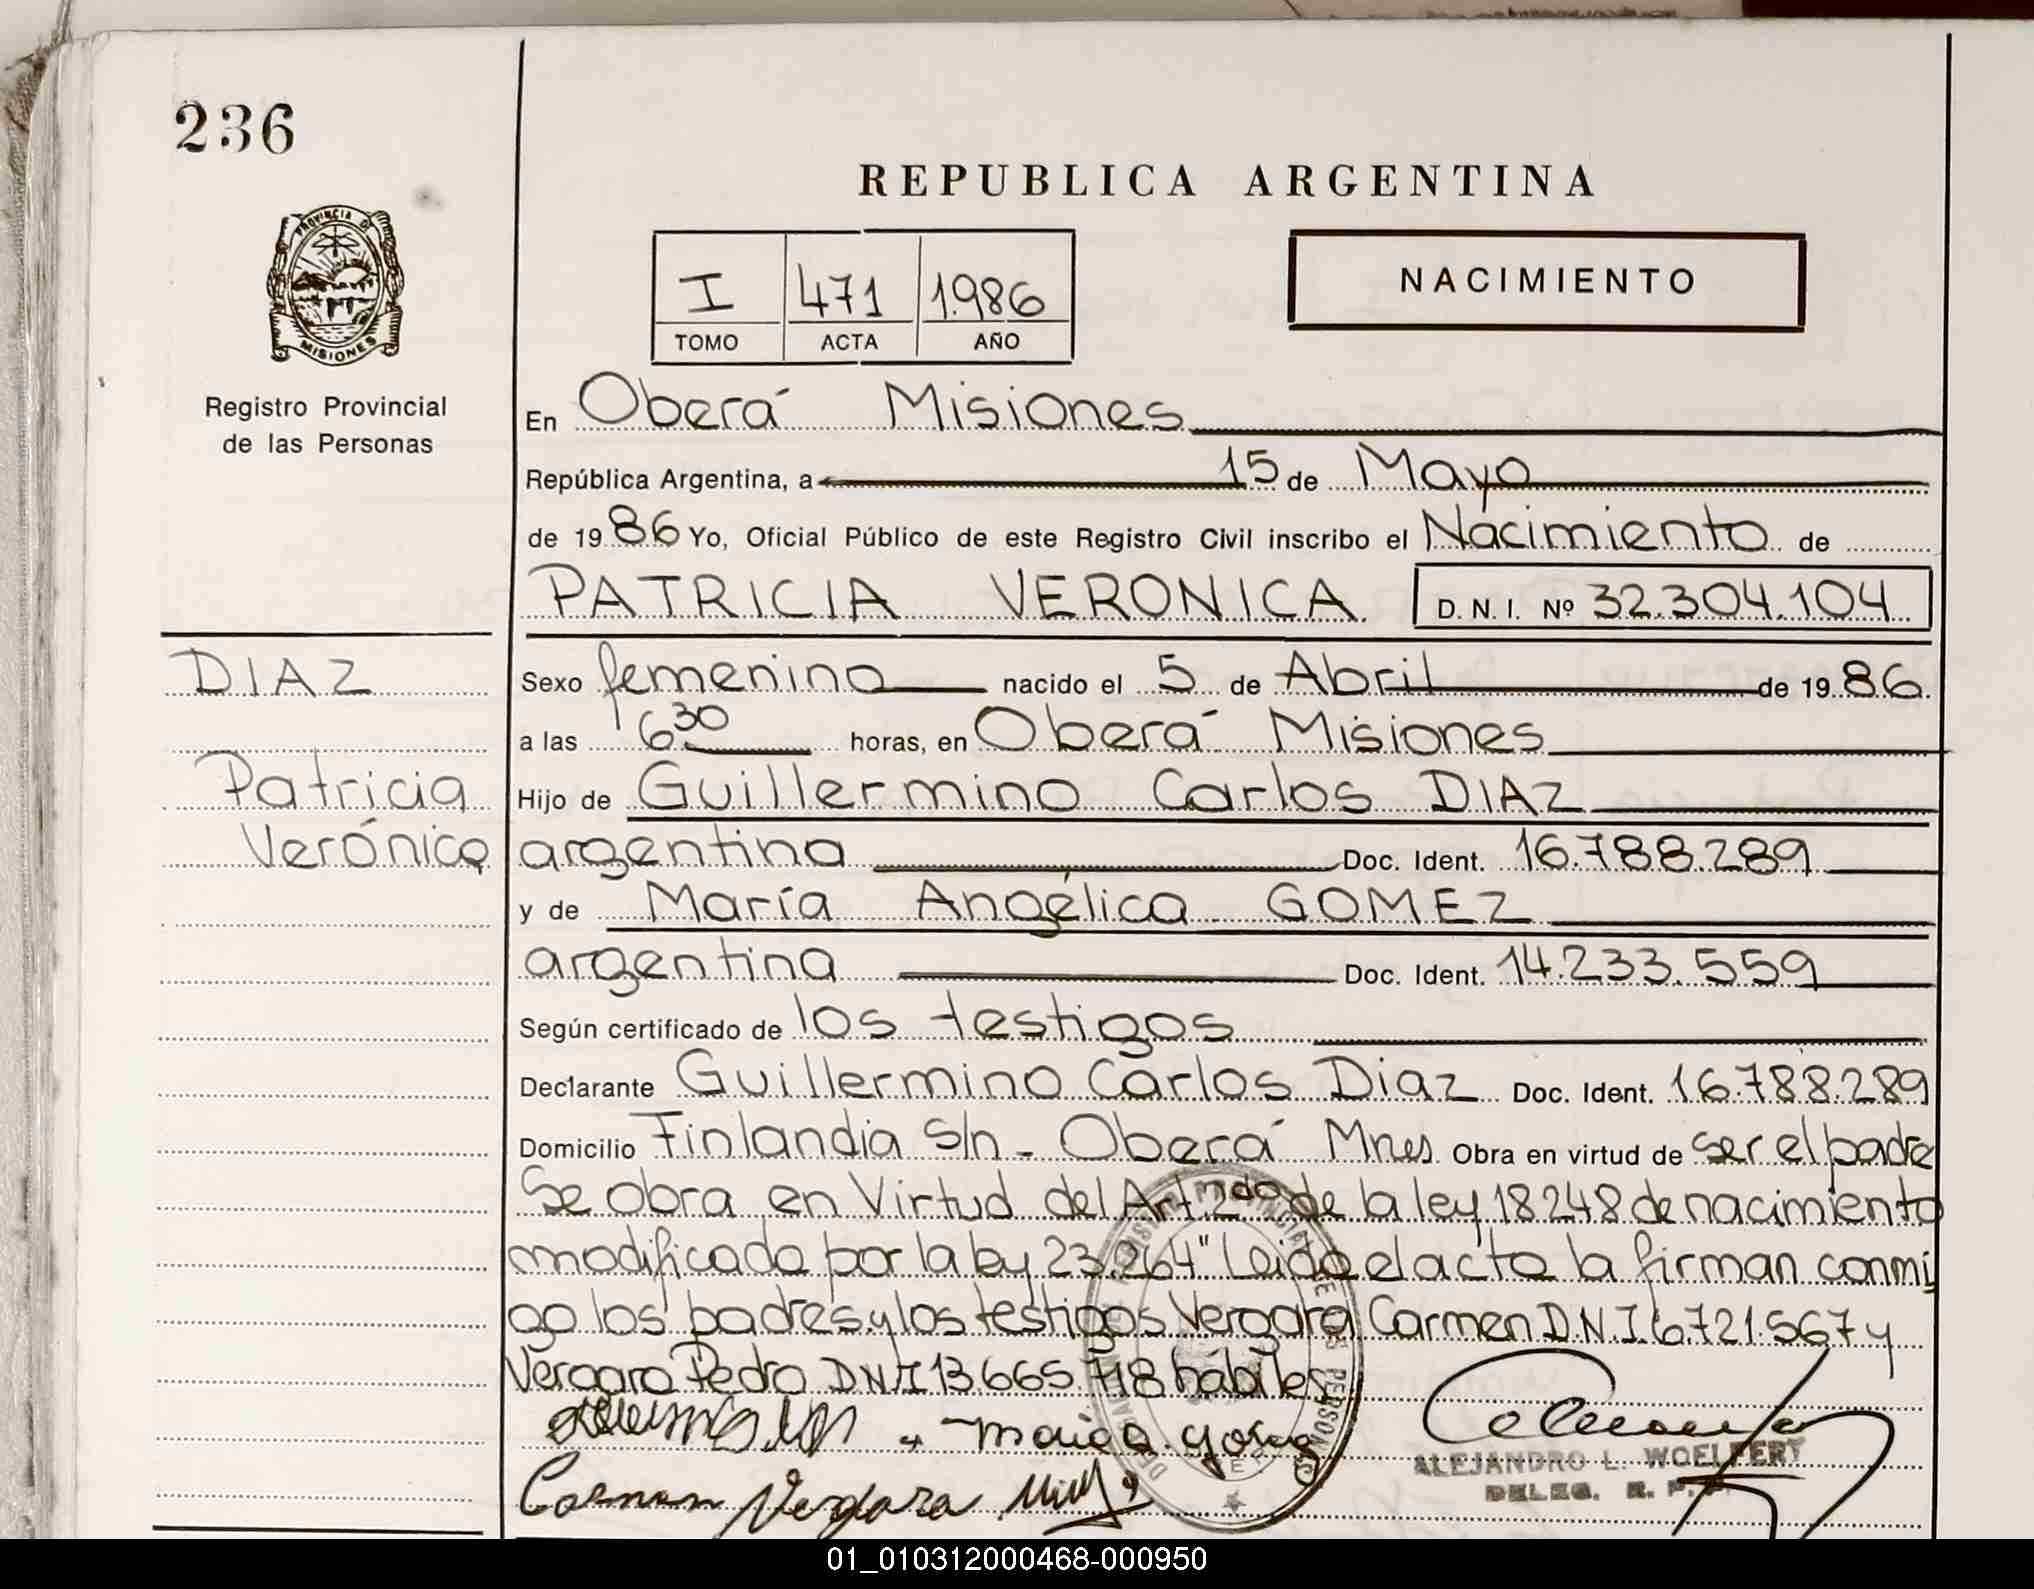 236
PROVINCIA D
MISIONES
Registro Provincial
de las Personas
REPUBLICA ARGENTINA
I 471 1.986
TOMO ACTA AÑO
NACIMIENTO
En Oberá Misiones
República Argentina, a 15 de Mayo
de 19 86 Yo, Oficial Público de este Registro Civil inscribo el Nacimiento de
PATRICIA VERONICA D. N. I. Nº 32.304.104
DIAZ
Patricia
Verónica
Sexo femenino nacido el 5 de Abril de 19 86
a las 6 30 horas, en Oberá Misiones
Hijo de Guillermino Carlos DIAZ
argentino Doc. Ident. 16.788.289
y de María Angélica GOMEZ
argentina Doc. Ident. 14.233.559
Según certificado de los testigos
Declarante Guillermino Carlos Diaz Doc. Ident. 16.788.289
Domicilio Finlandia s/n - Oberá Mnes Obra en virtud de ser el padre
Se obra en Virtud del Art 2do de la ley 18248 de nacimiento
modificado por la ley 23.264" Leido el acta la firman conmi
go los padres y los testigos Vergara Carmen D.N.I 6.721.567 y
Vergara Pedro DNI 13665 718 hábiles
Carmen Vergara
ALEJANDRO L. WOELFERT
DELEG. R. P.
01_010312000468-000950